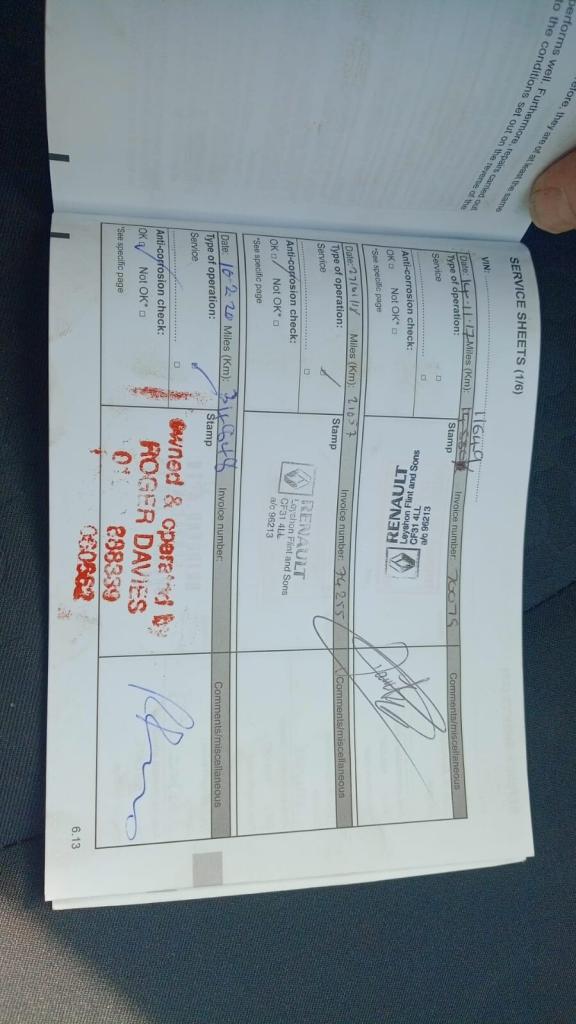 performs well. Furthermore, repairs carried out
to the conditions set out on the reverse of the
they are at least the same
SERVICE SHEETS (1/6)
VIN:
11649
Date: 14-11-17 Miles (Km): Invoice number: 70075 Comments/miscellaneous
Type of operation: Stamp
Service □
□
Anti-corrosion check:
OK □ Not OK* □
*See specific page
RENAULT
Leyshon Flint and Sons
CF31 4LL
a/c 96213
Date: Miles (Km): 21037 Invoice number: 74255 Comments/miscellaneous
Type of operation: Stamp
Service ✓
□
Anti-corrosion check:
OK □ Not OK* □
*See specific page
RENAULT
Leyshon Flint and Sons
CF31 4LL
a/c 96213
Date: 10-2-20 Miles (Km): 34648 Invoice number: Comments/miscellaneous
Type of operation: Stamp
Service ✓
□
Anti-corrosion check:
OK ✓ Not OK* □
*See specific page
owned & operated by
ROGER DAVIES
288339
060662
6.13